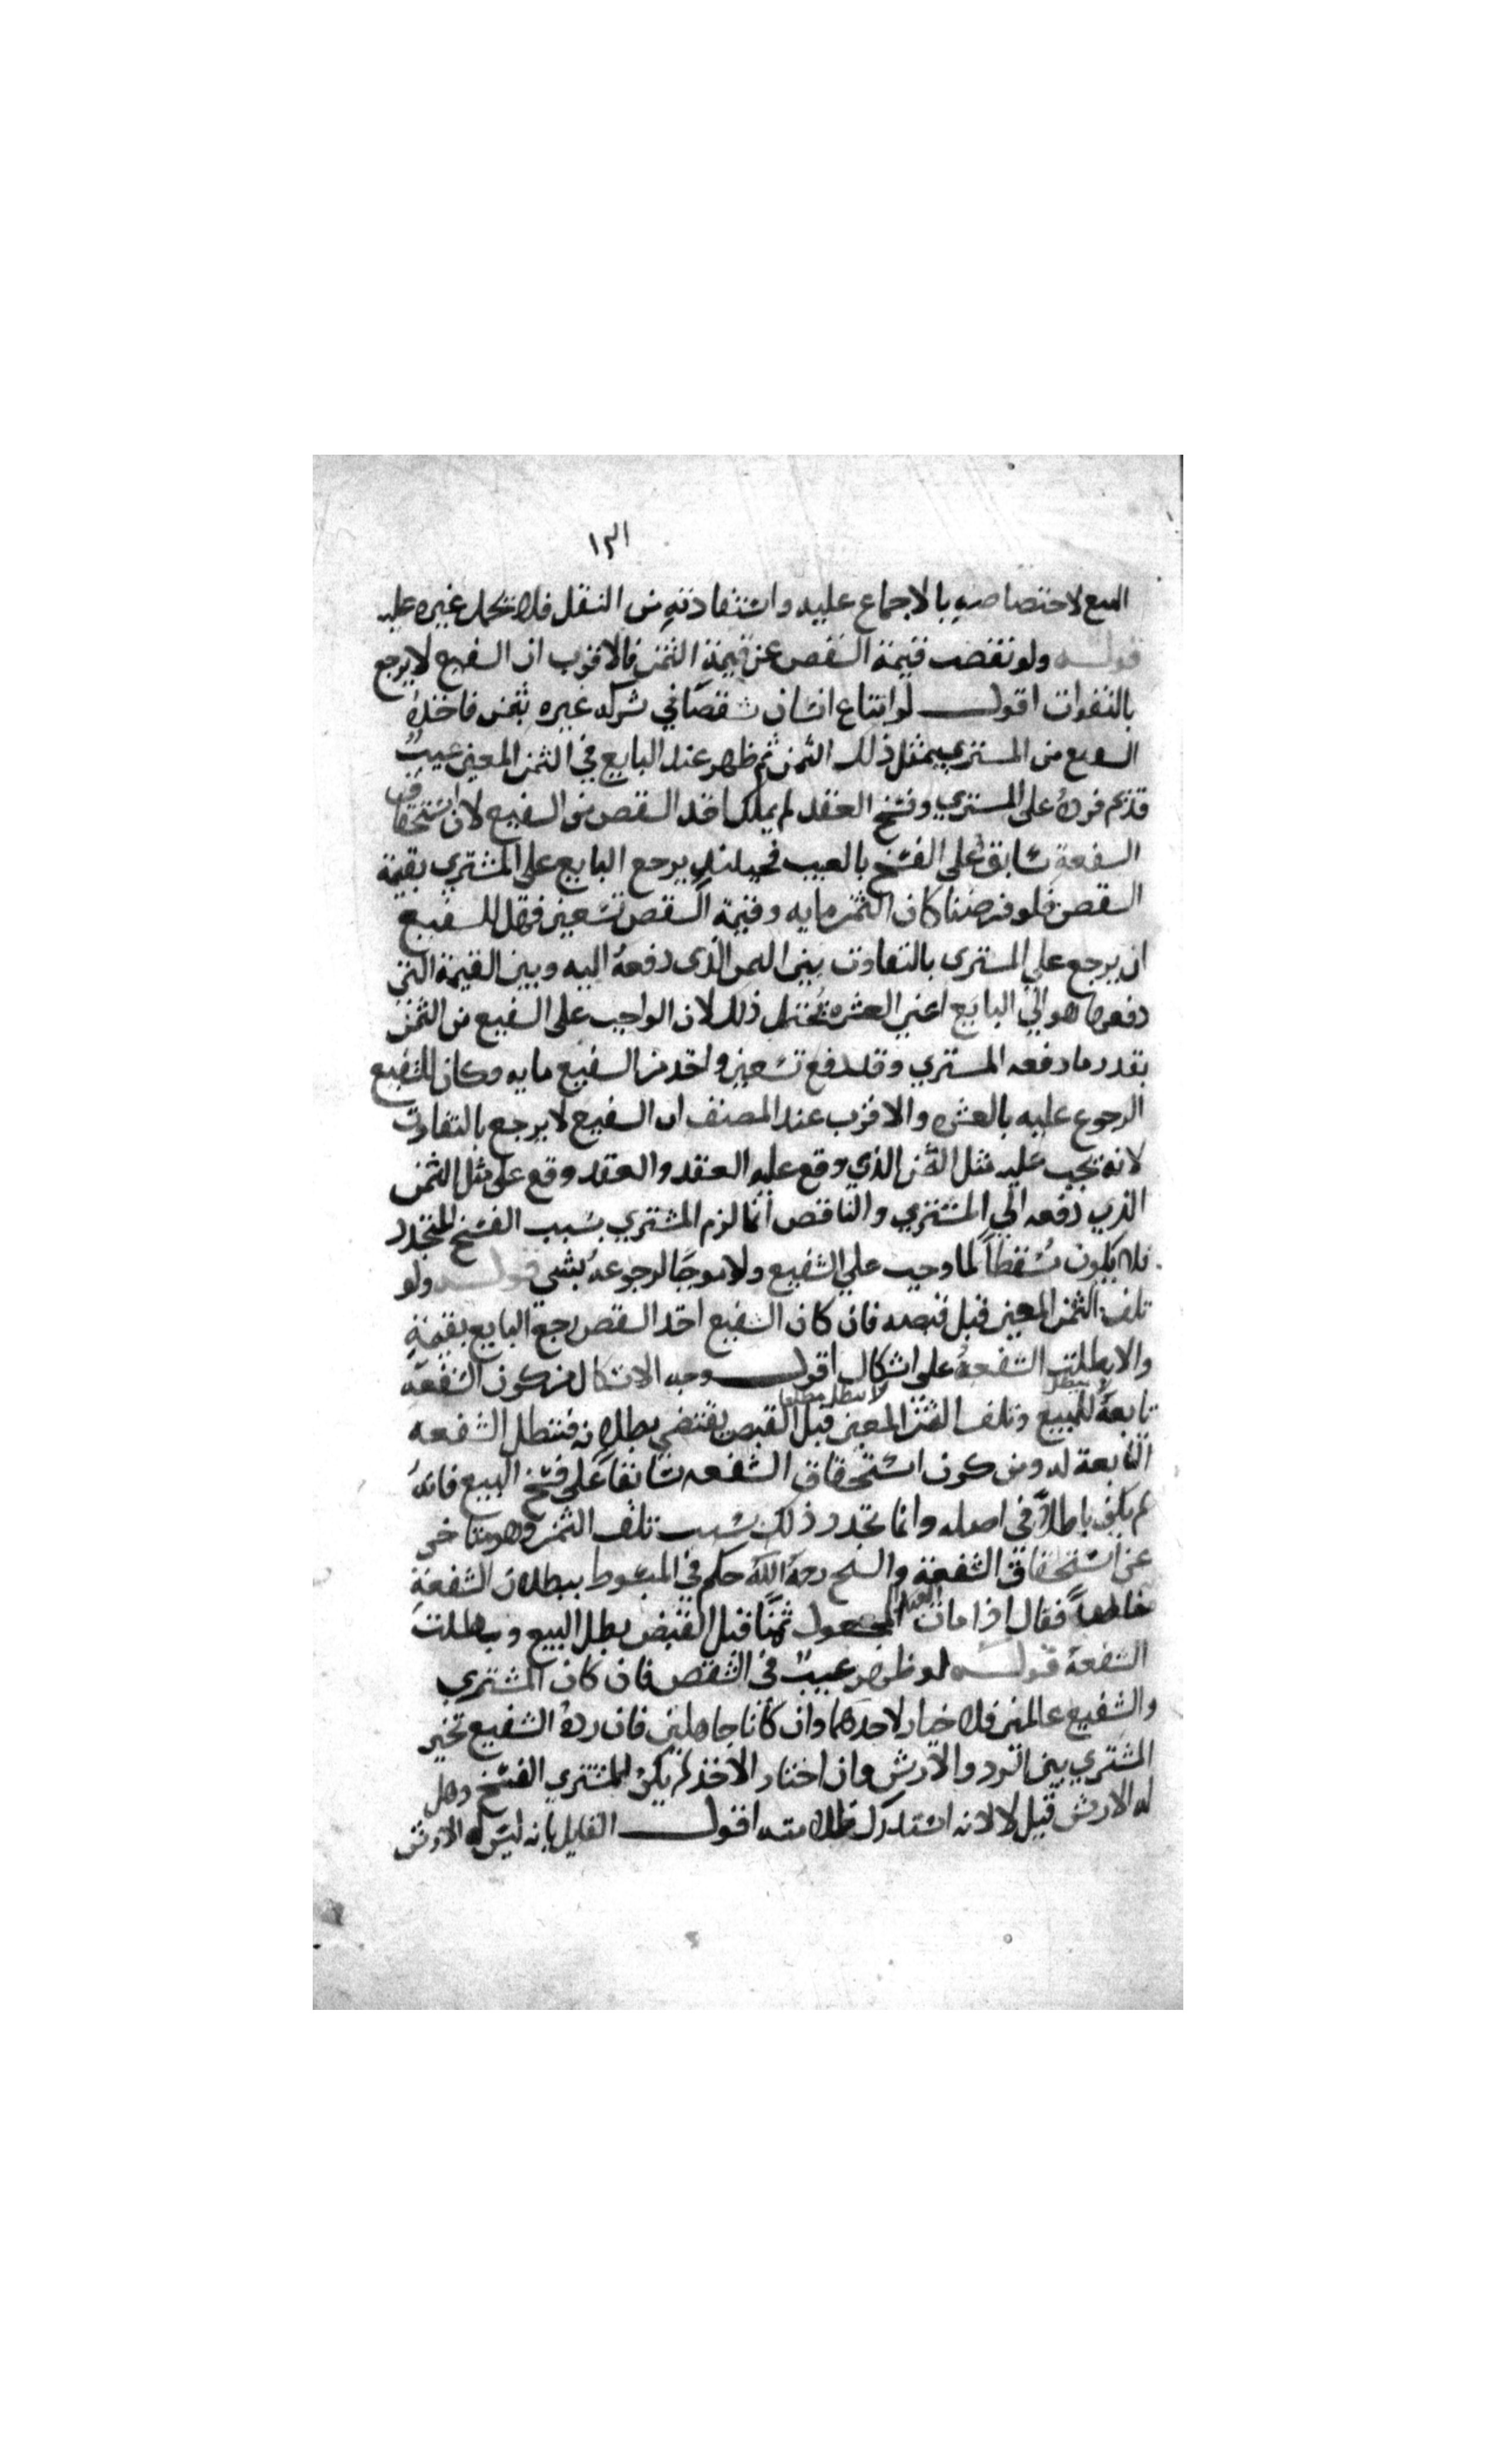 البيع لاختصاصه بالاجماع عليه واستفادته من النقل فلا يحمل غيره عليه
قوله ولو نقصت قيمة الشقص عن قيمة الثمن فالاقرب ان الشفيع لا يرجع
بالتفوات اقول لو ابتاع انسان شقصا في شركه غيره بثمن فاخذه
الشفيع من المشتري بمثل ذلك الثمن ثم ظهر عند البايع في الثمن المعين عيب
قديم فرده على المشتري وفسخ العقد لم يملك اخذ الشقص من الشفيع لان استحقاق
الشفعة سابق على الفسخ بالعيب فحينئذ يرجع البايع على المشتري بقيمة
الشقص فلو فرضنا كان الثمن مايه وقيمة الشقص تسعين فهل للشفيع
ان يرجع على المشتري بالتفاوت بين الثمن الذى دفعه اليه وبين القيمة التي
دفعها هو الي البايع اعني العشره يحتمل ذلك لان الواجب على الشفيع من الثمن
بقدر ما دفعه المشتري وقد دفع تسعين واخذ من الشفيع مايه وكان للشفيع
الرجوع عليه بالعشره والاقرب عند المصنف ان الشفيع لا يرجع بالتفاوت
لانه يجب عليه مثل الثمن الذي وقع عليه العقد والعقد وقع على مثل الثمن
الذي دفعه الي المشتري والناقص انما لزم المشتري بسبب الفسخ المتجدد
فلا يكون مسقطا لما وجب علي الشفيع ولا موجبا لرجوعه بشي قوله ولو
تلف الثمن المعين قبل قبضه فان كان الشفيع اخذ الشقص رجع البايع بقيمته
والا بطلت الشفعة على اشكال اقول وجه الاشكال من كون الشفعة
لا يبطل لا يبطل مطلقا
تابعة للبيع وتلف الثمن المعين قبل القبض يقتضي بطلانه فتبطل الشفعه
التابعة له ومن كون استحقاق الشفعه سابقا على فسخ البيع فانه
لم يكن باطلا في اصله وانما تجدد ذلك بسبب تلف الثمن وهو متاخر
عن استحقاق الشفعة والشيخ رحمه الله حكم في المبسوط ببطلان الشفعة
فقال اذا مات العبد المجعول ثمنا قبل القبض بطل البيع وبطلت
الشفعة قوله لو ظهر عيب في الشقص فان كان المشتري
والشفيع عالمين فلا خيار لاحدهما وان كانا جاهلين فان رده الشفيع تخير
المشتري بين الرد والارش وان اختار الاخذ لم يكن للمشتري الفسخ وهل
له الارش قيل لا لانه استدرك ظلامته اقول القايل بانه ليس له الارش